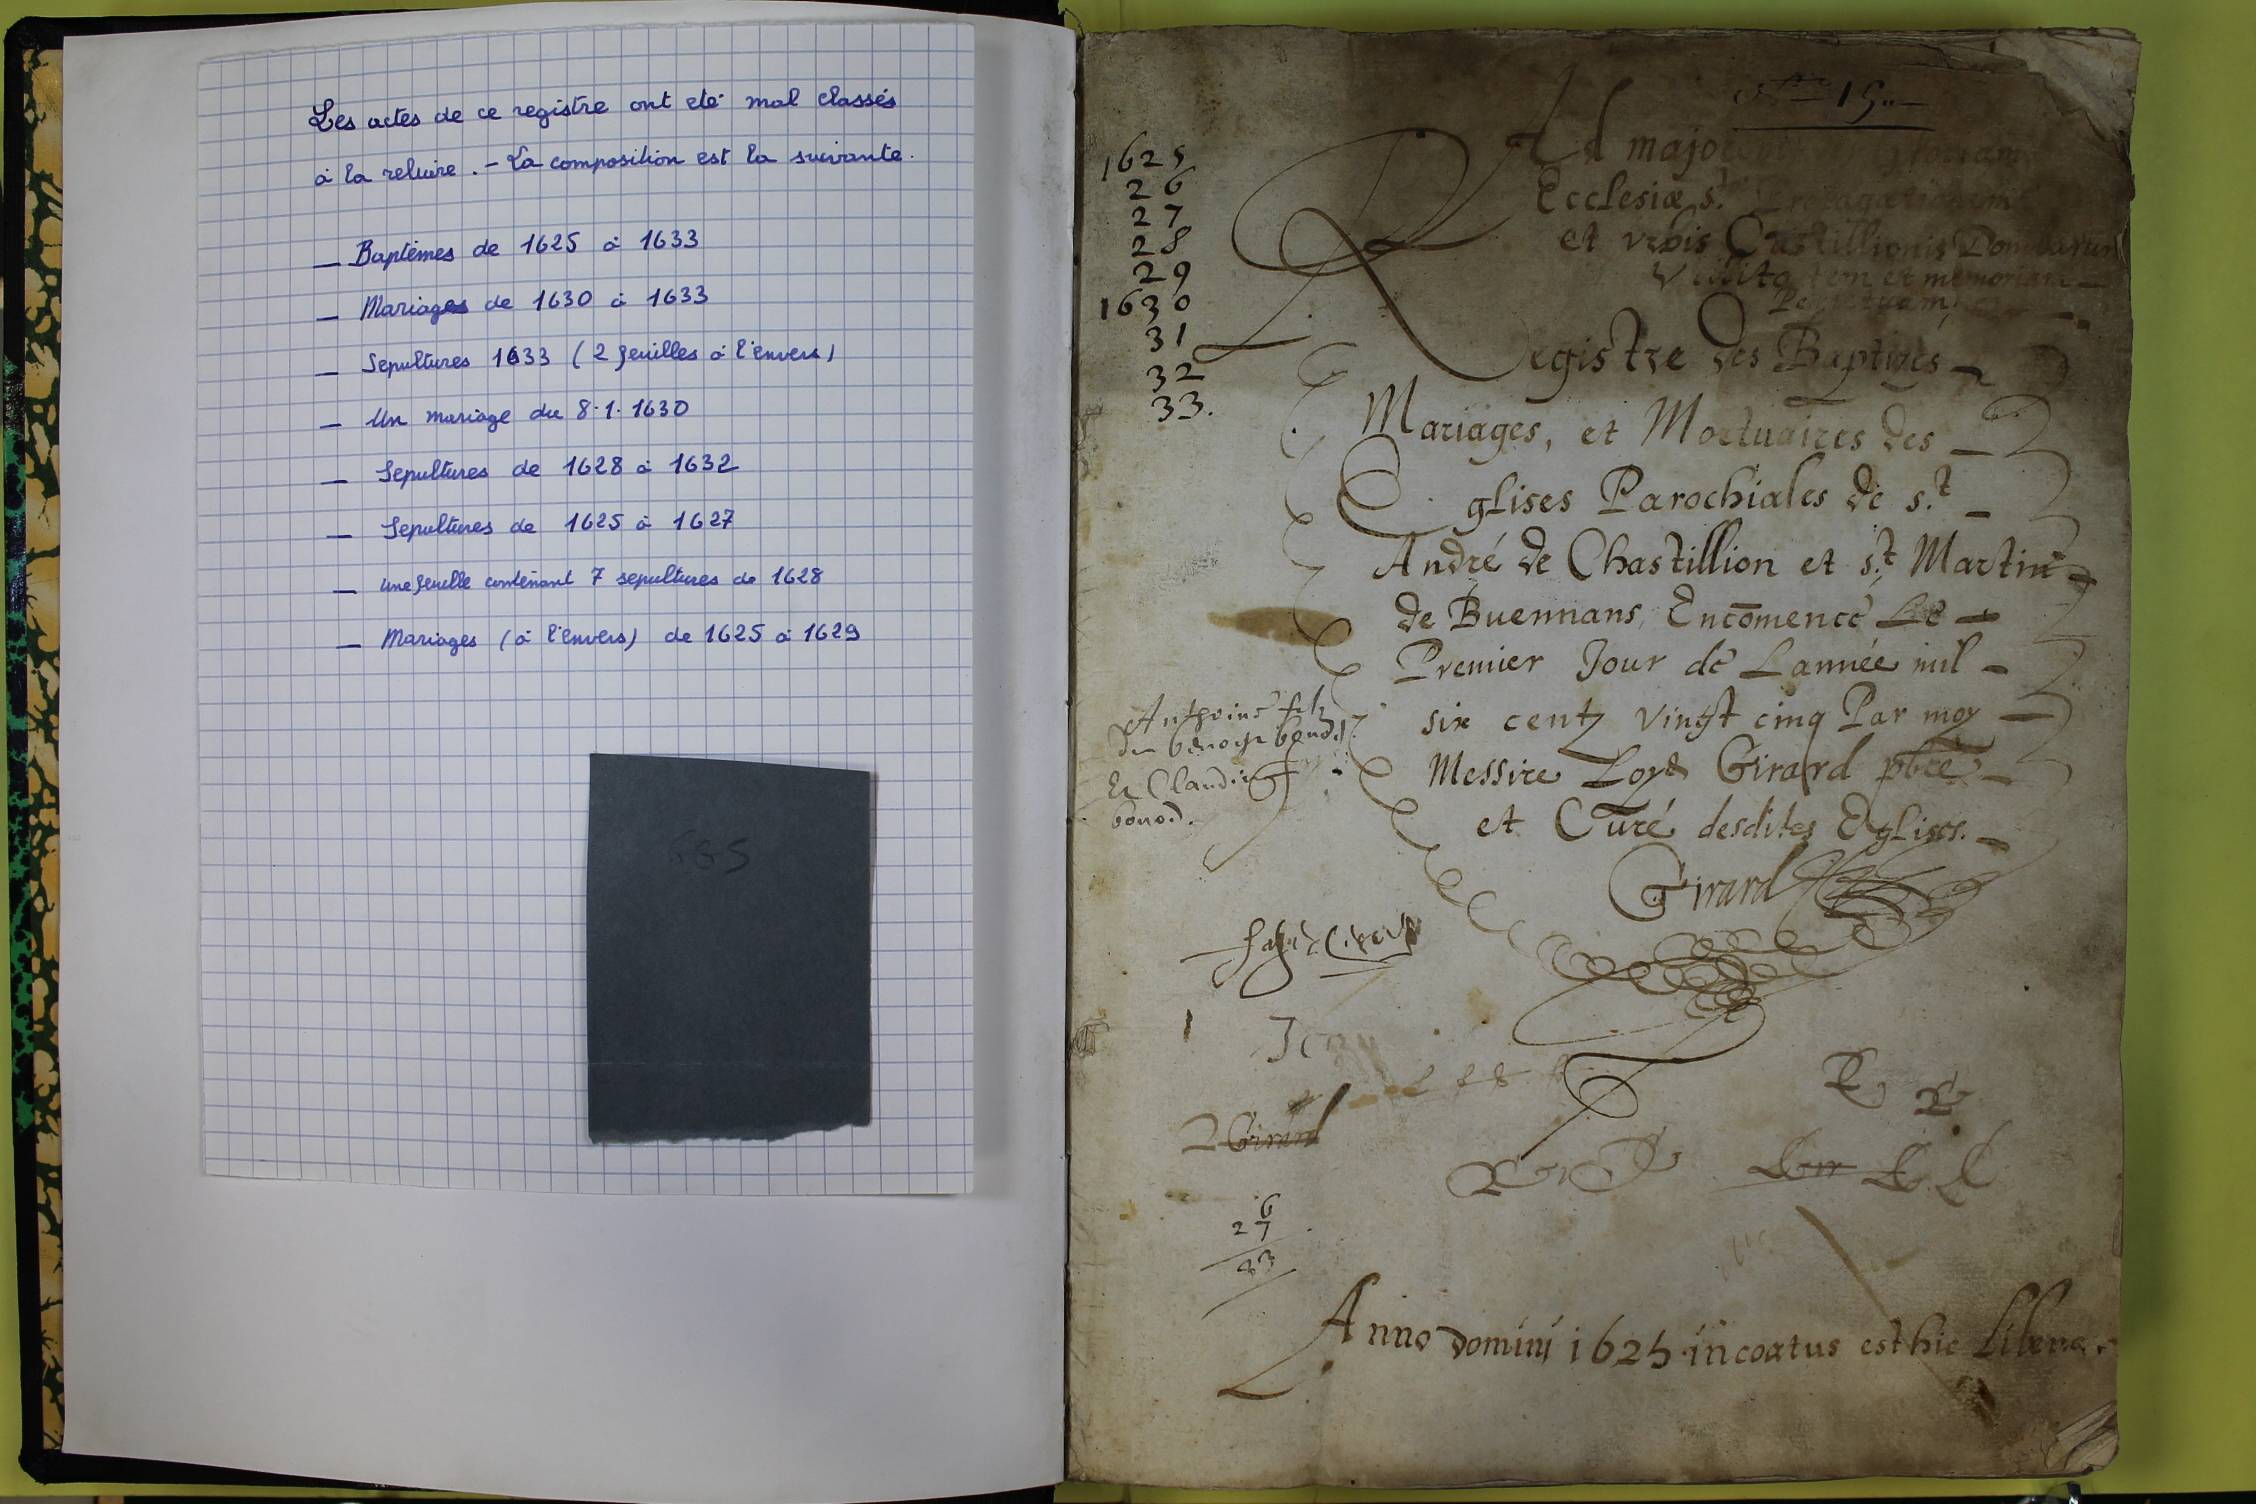 Les actes de ce registre ont été mal classés
à la reliure. - La composition est la suivante.
— Baptêmes de 1625 à 1633
— Mariages de 1630 à 1633
— Sepultures 1633 (2 feuilles à l'envers)
— Un mariage du 8.1.1630
— Sepultures de 1628 à 1632
— Sepultures de 1625 à 1627
— une feuille contenant 7 sepultures de 1628
— Mariages (à l'envers) de 1625 à 1629
665
15
1625
26
27
28
29
1630
31
32
33.
Ad
Ecclesiæ s.
et vrbis Castillionis Dombarum
et memoriam
Registre des Baptizes
Mariages, et Mortuaires des
Eglises Parochiales de s.t
André de Chastillion et s.t Martin
de Buennans, Encōmencé Le
Premier Jour de Lannée mil
six centz vingt cinq Par moy
Messire Loys Girard pbrē
et Curé desdites Eglises.
Girard
Anthoine filz
de benoyt
Et Claudi
bonod.
1
2 Girard
6
27
33
Anno domini 1625 incoatus est hic Liber